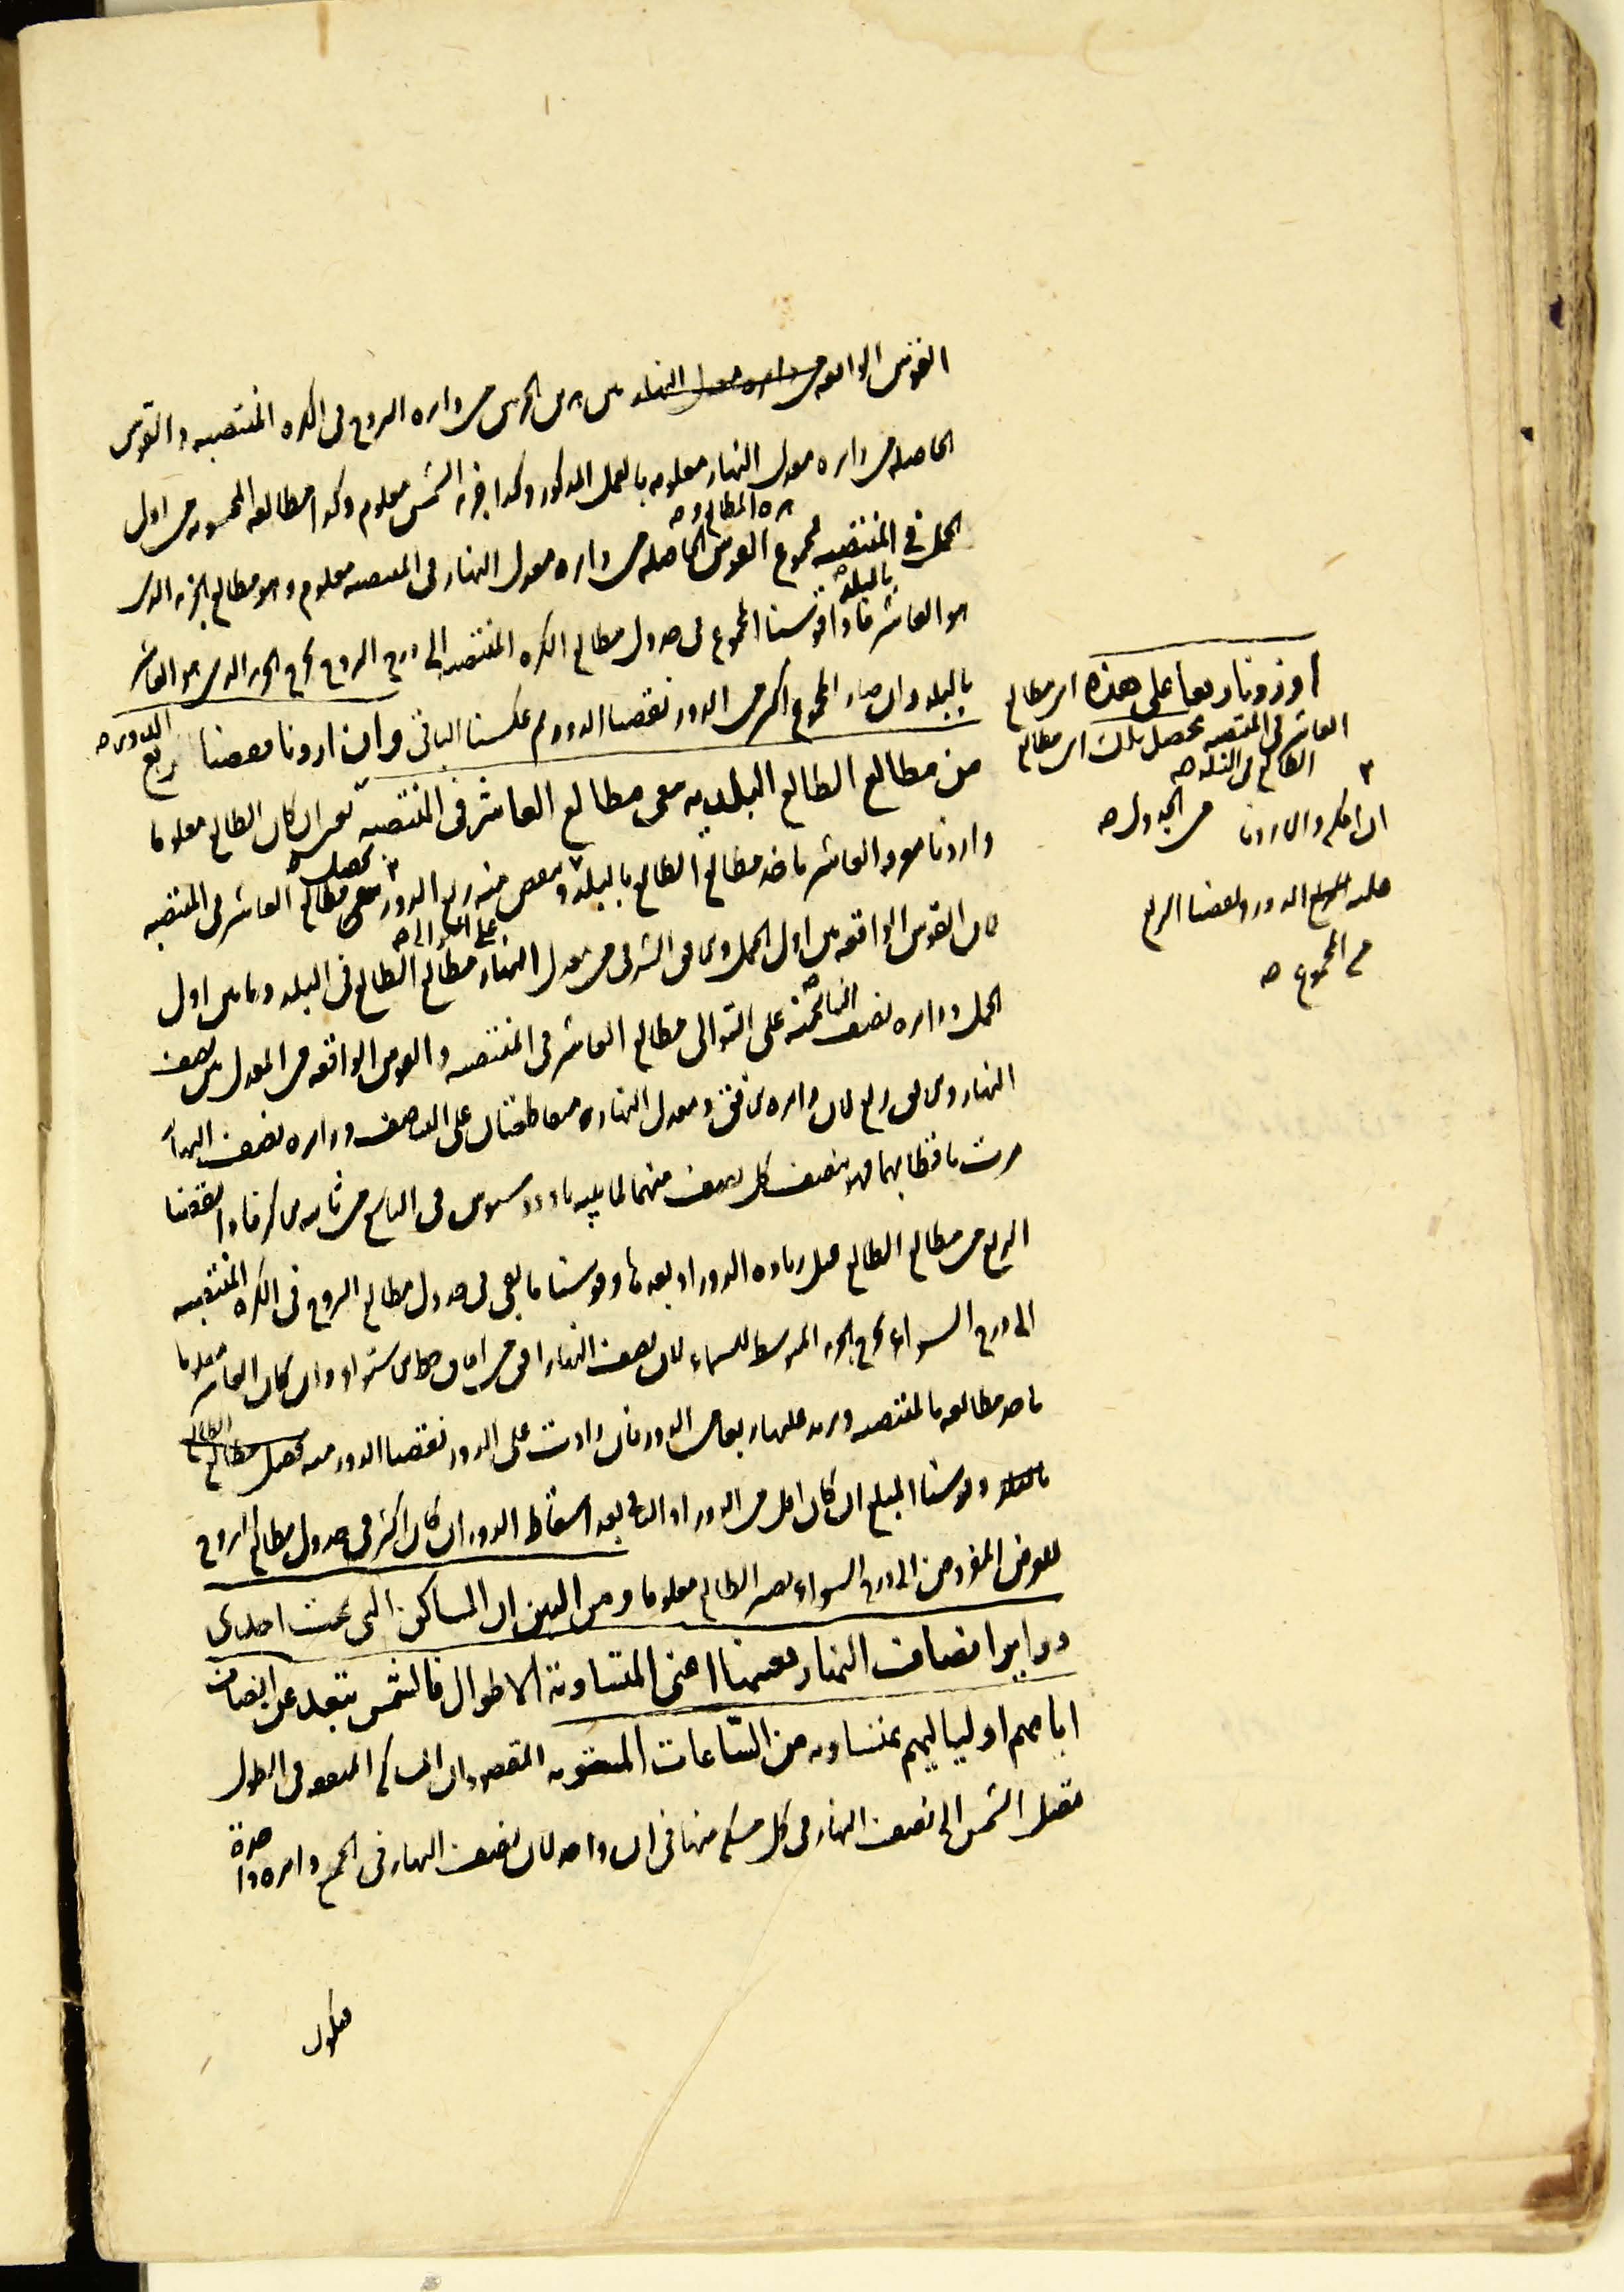 القوس الواقعه من دايره معدل النهار بين هذين الجزئين من دايره البروج في الكره المنتصبه والقوس
الحاصله من دايره معدل النهار معلومه بالعمل المذكور وكذا جزء الشمس معلوم وكذا مطالعه المحسوبه من اول
هذه المطالع و صح
الحمل في المنتصبه فمجموع القوس الحاصله من دايره معدل النهار في المنتصبه معلوم وهو مطالع الجزء الذى
بالبلد
هو العاشر فاذا قوسنا المجموع في جدول مطالع الكره المنتصبه الى درج البروج خرج الجزء الذى هو العاشر
بالبلد وان صار المجموع اكثر من الدور نقصنا الدور ثم عكسنا الباقى وان اردنا نقصنا ربع
من مطالع الطالع البلديه بقى مطالع العاشر فى المنتصبه يعنى ان كان الطالع معلوما
واردنا معرفه العاشر ناخذ مطالع الطالع بالبلد وننقص منه ربع الدور يبقى مطالع العاشر فى المنتصبه
يحصل
على التوالى صح
لان القوس الواقعه بين اول الحمل والافق الشرقى من معدل النهار مطالع الطالع فى البلد وما بين اول
الحمل ودايره نصف النهار منه على التوالى مطالع العاشر فى المنتصبه والقوس الواقعه من المعدل بين نصف
النهار والافق ربع لان دايرة الافق ومعدل النهار متقاطعتان على التناصف ودايره نصف النهار
مرت باقطابهما فهو ينصف كل نصف منهما لما بينه ثاودوسيوس فى التاسع من ثانيه الاكر فاذا نقصنا
الربع من مطالع الطالع قبل زياده الدور او بعدها وقوسنا ما بقى فى جدول مطالع البروج فى الكره المنتصبه
الى درج السواء خرج الجزء المتوسط للسماء لان نصف النهار افق من افاق خط الاستواء وان كان العاشر معلوما
ناخذ مطالعه بالمنتصبه ونزيد عليها ربعا من الدور فان زادت على الدور نقصنا الدور منه يحصل مطالع الطالع
بالبلد وقوسنا المبلغ ان كان اقل من الدور او الباقى بعد اسقاط الدور ان كان اكثر فى جدول مطالع البروج
للعرض المفروض الى درج السواء يصير الطالع معلوما ومن البين ان المساكن التى تحت احدى
دواير انصاف النهار بعينها اعنى المتساوية الاطوال فالشمس تبعد عن انصاف
ايامهم او لياليهم بمتساويه من الساعات المستويه المقصود ان المساكن المتفقه فى الطول
تصل الشمس الى نصف النهار فى كل مسكن منها فى آن واحد لان نصف النهار فى الجميع دايره واحدة
فيكون
او زدنا ربعا على هذه اى مطالع
العاشر فى المنتصبه يحصل تلك اى مطالع
الطالع فى البلد صح
ان امكن والا زدنا
من الجدول صح
عليه الدور ونقصنا الربع
من المجموع صح